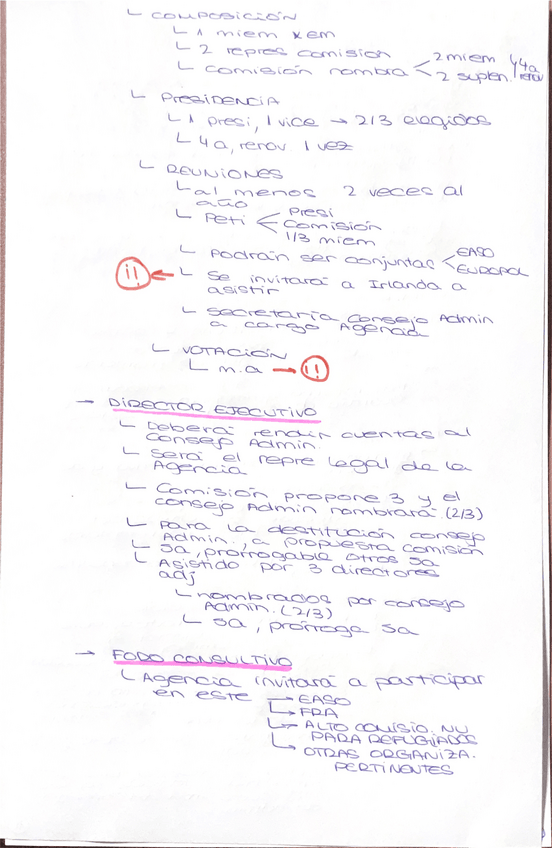 └ COMPOSICIÓN
└ 1 miem x em
└ 2 repres comisión
└ comisión nombra < 2 miem
2 suplen. y 4a renov
└ PRESIDENCIA
└ 1 presi, 1 vice → 2/3 elegidos
└ 4a, renov 1 vez
└ REUNIONES
└ al menos 2 veces al
año
└ Peti < Presi
Comisión
1/3 miem
└ Podrán ser conjuntas < EASO
EUROPOL
¡! ← └ Se invitará a Irlanda a
asistir
└ Secretaría Consejo Admin
a cargo Agencia
└ VOTACIÓN
└ m.a → ¡!
→ DIRECTOR EJECUTIVO
└ Deberá rendir cuentas al
Consejo Admin.
└ Será el repre legal de la
Agencia
└ Comisión propone 3 y el
consejo Admin nombrará (2/3)
└ Para la destitución consejo
Admin., a propuesta comisión
└ 5a, prorrogable otros 5a
└ Asistido por 3 directores
adj
└ nombrados por consejo
Admin. (2/3)
└ 5a, prórroga 5a
→ FORO CONSULTIVO
└ Agencia invitará a participar
en este → EASO
└→ FRA
└→ ALTO COMISIO. NU
PARA REFUGIADOS
└→ OTRAS ORGANIZA.
PERTINENTES